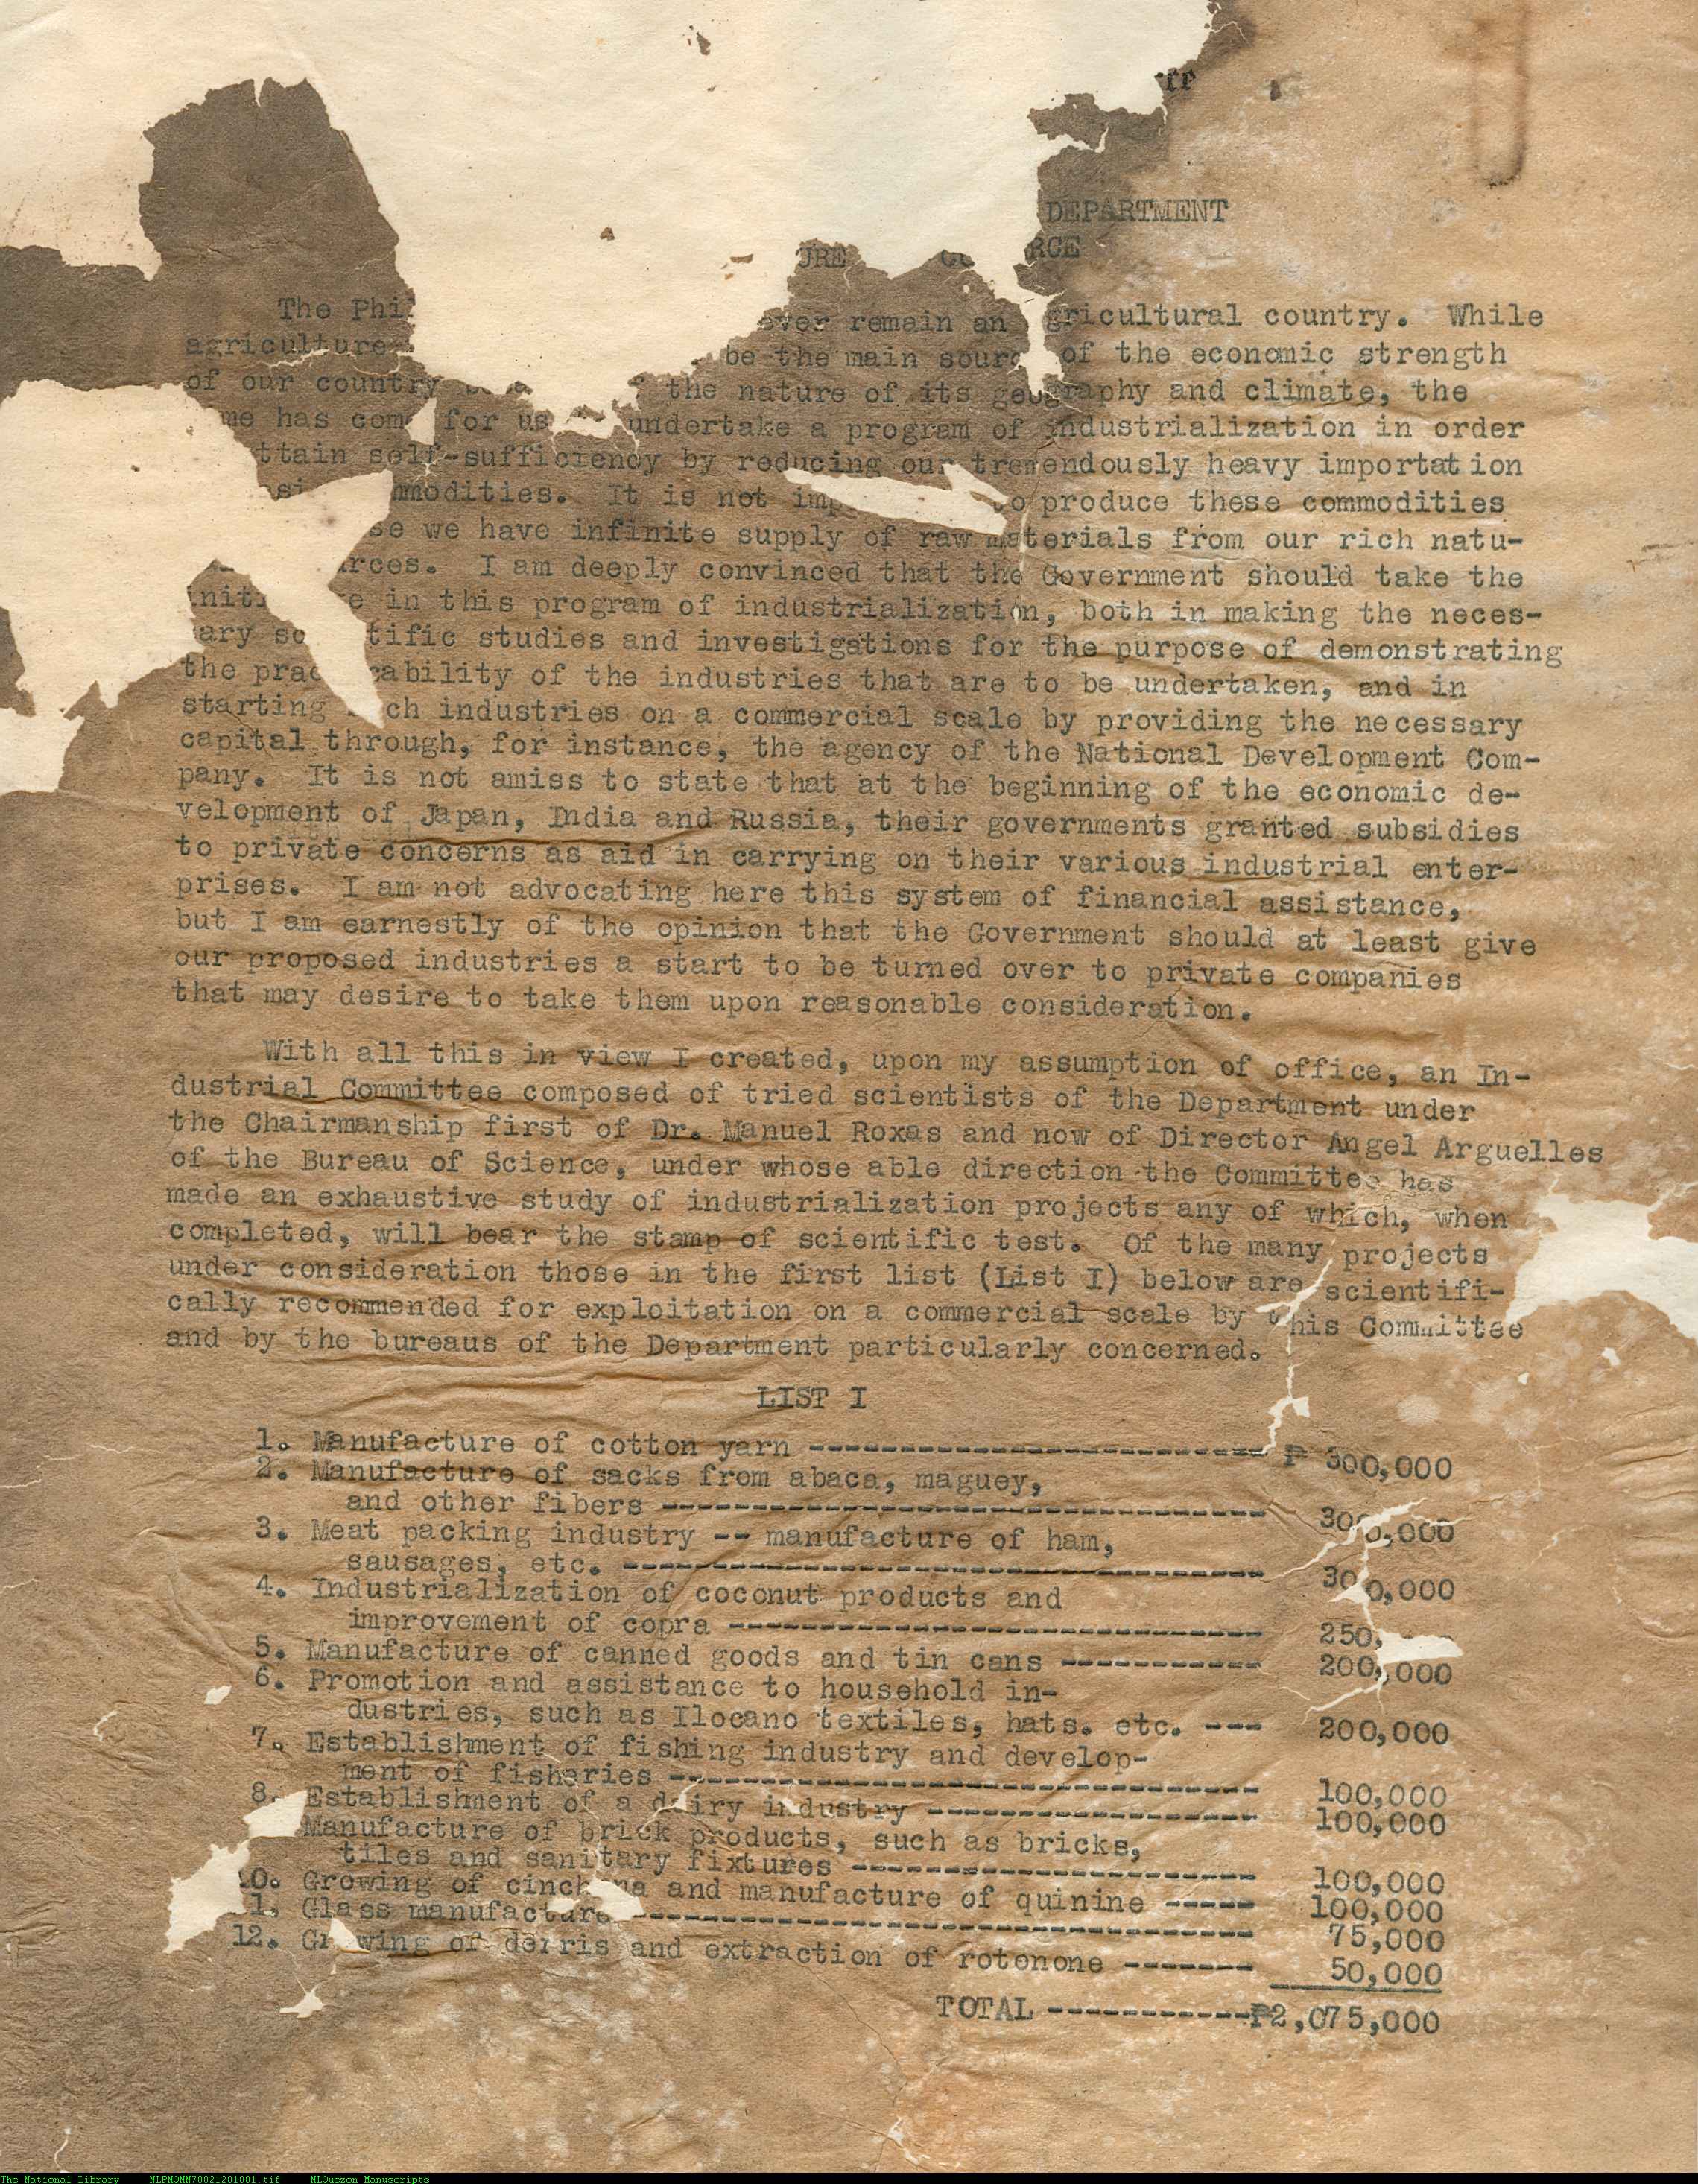 DEPARTMENT
The Phi ever remain an gricultural country. While
agriculture be the main sourc of the economic strength
of our country the nature of its geography and climate, the
me has com for us undertake a program of industrialization in order
ttain self-sufficiency by reducing our tremendously heavy importation
mmodities. It is not imp o produce these commodities
se we have infinite supply of raw materials from our rich natu-
rces. I am deeply convinced that the Government should take the
nit e in this program of industrialization, both in making the neces-
ary sc tific studies and investigations for the purpose of demonstrating
the prac cability of the industries that are to be undertaken, and in
starting ch industries on a commercial scale by providing the necessary
capital through, for instance, the agency of the National Development Com-
pany. It is not amiss to state that at the beginning of the economic de-
velopment of Japan, India and Russia, their governments granted subsidies
to private concerns as aid in carrying on their various industrial enter-
prises. I am not advocating here this system of financial assistance,
but I am earnestly of the opinion that the Government should at least give
our proposed industries a start to be turned over to private companies
that may desire to take them upon reasonable consideration.
With all this in view I created, upon my assumption of office, an In-
dustrial Committee composed of tried scientists of the Department under
the Chairmanship first of Dr. Manuel Roxas and now of Director Angel Arguelles
of the Bureau of Science, under whose able direction the Committee has
made an exhaustive study of industrialization projects any of which, when
completed, will bear the stamp of scientific test. Of the many projects
under consideration those in the first list (List I) below are scientifi-
cally recommended for exploitation on a commercial scale by this Committee
and by the bureaus of the Department particularly concerned.
LIST I
1. Manufacture of cotton yarn ------------------------- ₱ 300,000
2. Manufacture of sacks from abaca, maguey,
and other fibers --------------------------------- 300,000
3. Meat packing industry -- manufacture of ham,
sausages, etc. ----------------------------------- 300,000
4. Industrialization of coconut products and
improvement of copra ----------------------------- 250,
5. Manufacture of canned goods and tin cans ----------- 200,000
6. Promotion and assistance to household in-
dustries, such as Ilocano textiles, hats. etc. --- 200,000
7. Establishment of fishing industry and develop-
ment of fisheries -------------------------------- 100,000
8. Establishment of a dairy industry ------------------ 100,000
Manufacture of brick products, such as bricks,
tiles and sanitary fixtures ---------------------- 100,000
10. Growing of cinchona and manufacture of quinine ----- 100,000
1. Glass manufacture ---------------------------------- 75,000
12. Growing of derris and extraction of rotenone ------- 50,000
TOTAL -----------₱2,075,000
The National Library NLPMQMN70021201001.tif MLQuezon Manuscripts